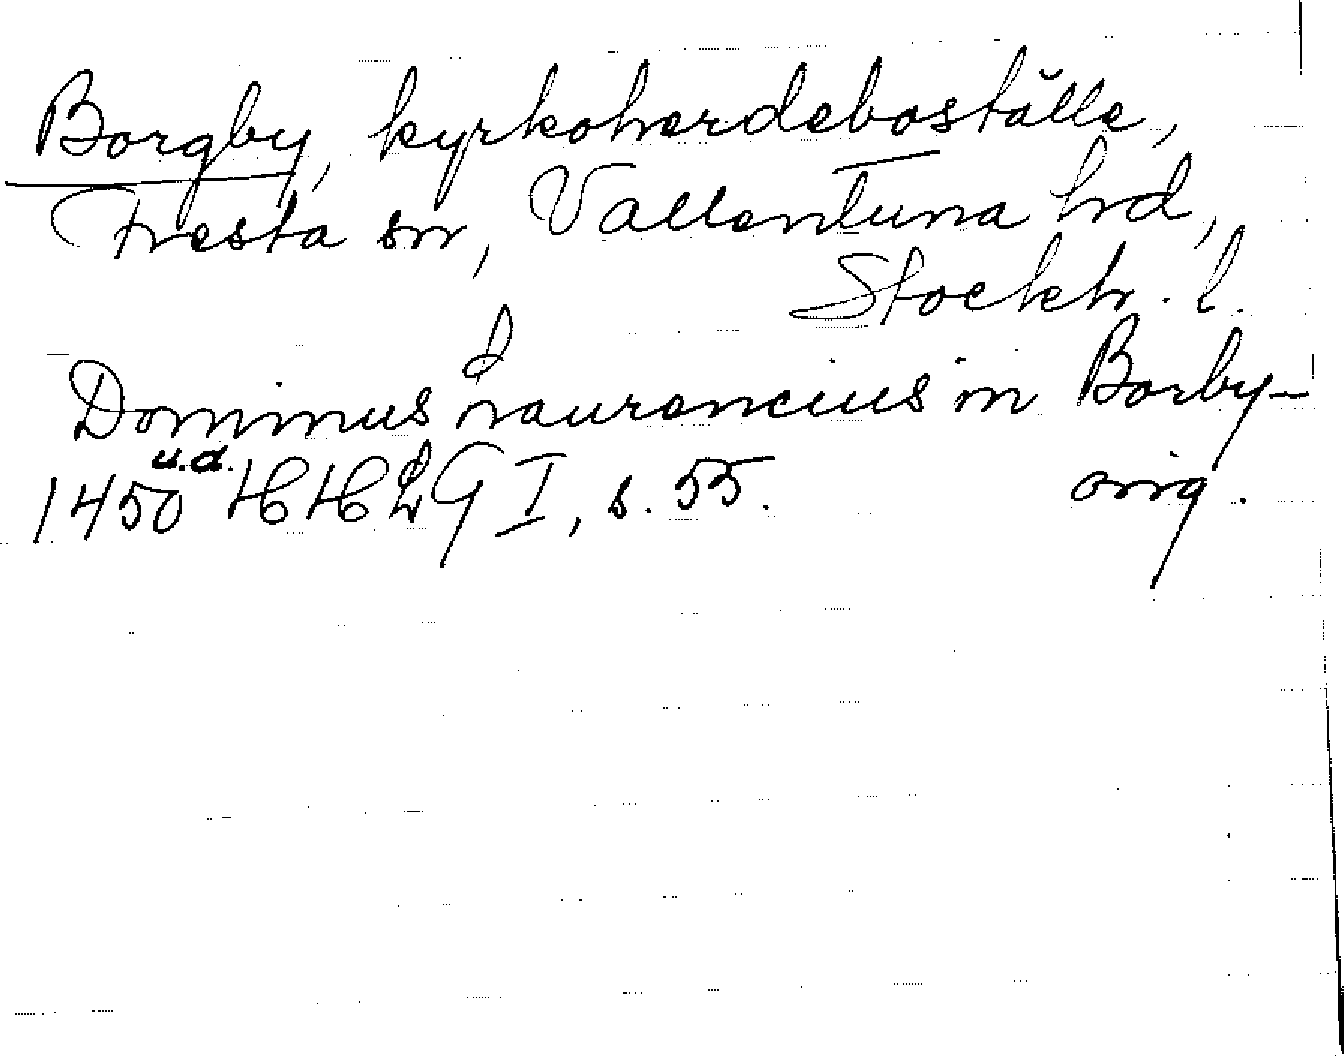 Borgby, kyrkoherdeboställe,
Fresta sn, Vallentuna hd,
Stockh. l.
Dominus Laurencius in Borby–
1450 u.d. HHLG I, s. 55. orig.